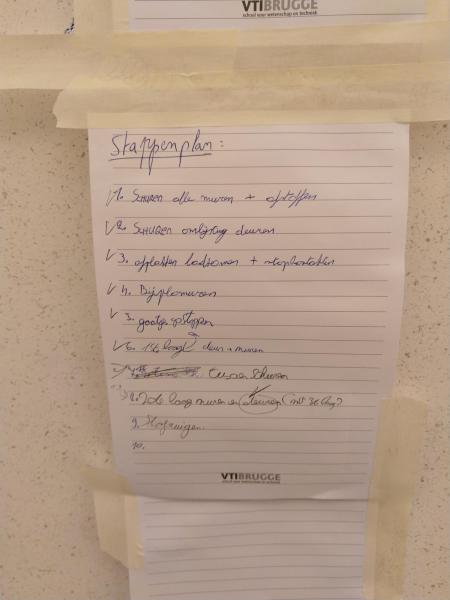 VTIBRUGGE
school voor wetenschap en techniek
Stappenplan:
1. SCHUREN alle muren + afstoffen
2. SCHUREN omlijsting deuren
3. afplakken + stopkontakten
4. Bijplamuren
5. gaatjes opstoppen
6. 1ste laag deur + muren
Tussen Schuren
8. 2de laag muren en deuren (mt 3e laag?
9.
10.
VTIBRUGGE
school voor wetenschap en techniek